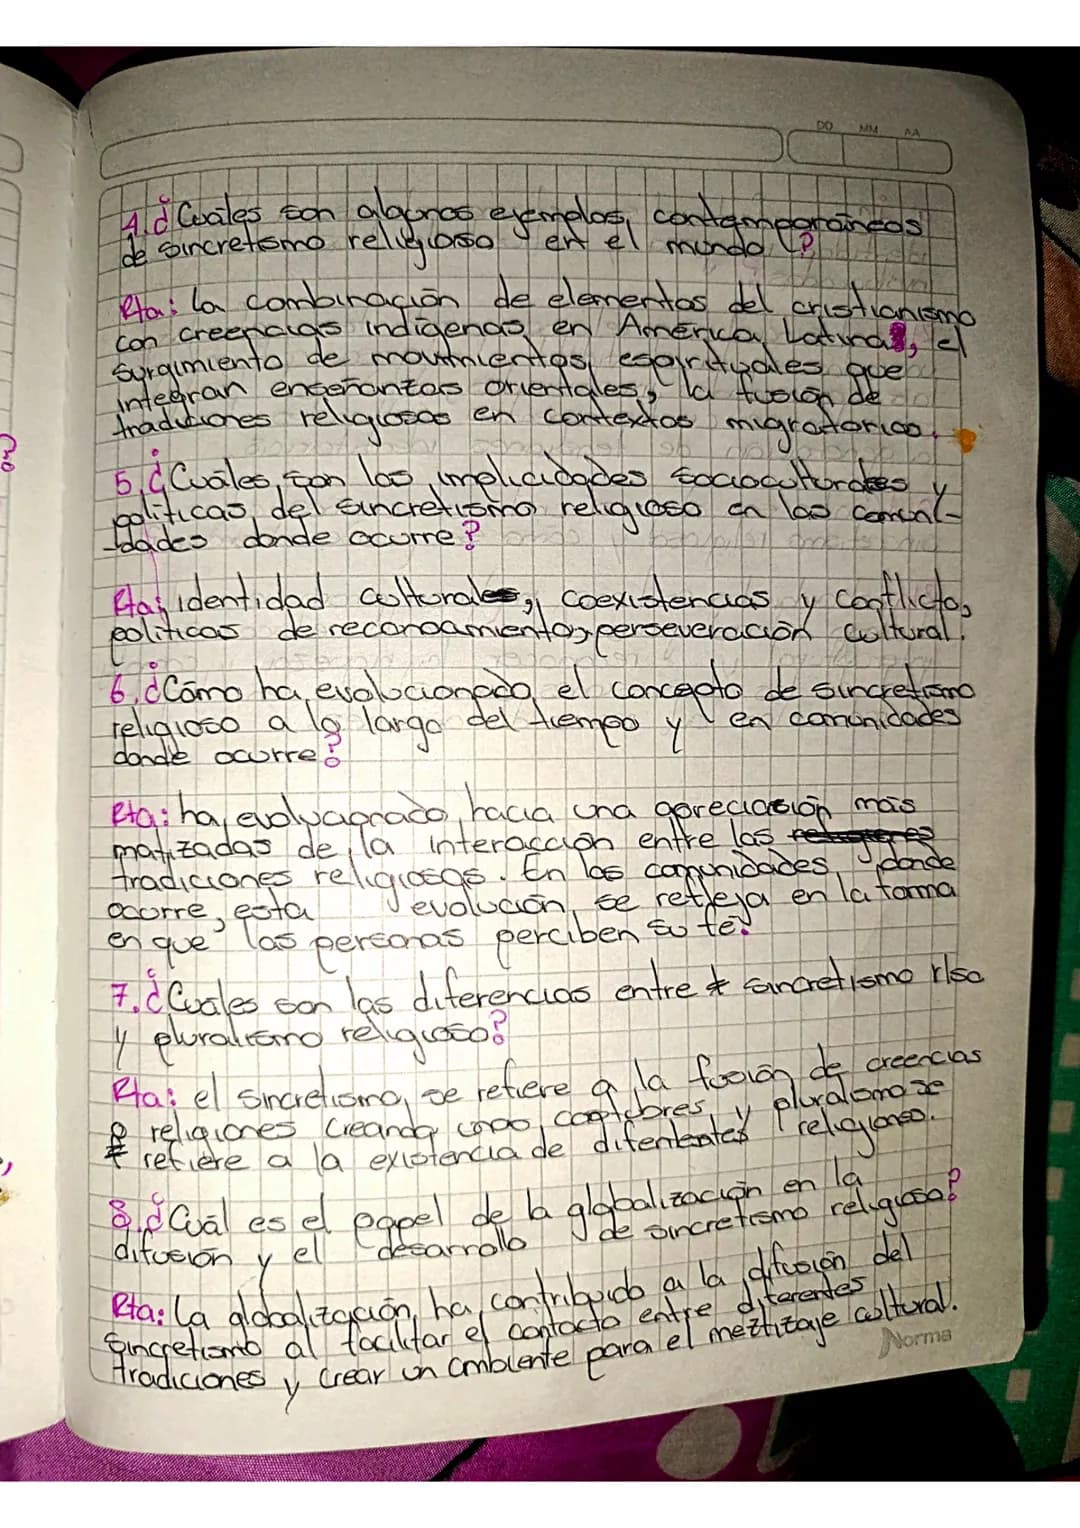 DD MM AA
4.¿Cuáles son algunos ejemplos contemporáneos
de sincretismo religioso en el mundo?
Rta: La combinación de elementos del cristianismo
con creencias indígenas en América Latina, el
surgimiento de movimientos espirituales que
integran enseñanzas orientales, la fusión de
tradiciones religiosas en contextos migratorios.
5.¿Cuáles son las implicidades socioculturales y
políticas del sincretismo religioso en las comuni-
-dades donde ocurre?
Rta: identidad culturales, coexistencias y conflicto,
políticas de reconocimiento, perseveración cultural.
6.¿Cómo ha evolucionado el concepto de sincretismo
religioso a lo largo del tiempo y en comunidades
donde ocurre?
Rta: ha evolucionado hacia una apreciación más
matizadas de la interacción entre las
tradiciones religiosas. En las comunidades donde
ocurre, esta evolución se refleja en la forma
en que las personas perciben su fe.
7.¿Cuáles son las diferencias entre sincretismo rlso
y pluralismo religioso?
Rta: el sincretismo se refiere a la fusión de creencias
religiones creando y pluralismo se
refiere a la existencia de religiones.
8.¿Cuál es el papel de la globalización en la
difusión y el desarrollo de sincretismo religioso?
Rta: La globalización ha contribuido a la difusión del
sincretismo al facilitar el contacto entre diferentes
tradiciones y crear un ambiente para el meztizaje cultural.
Norma